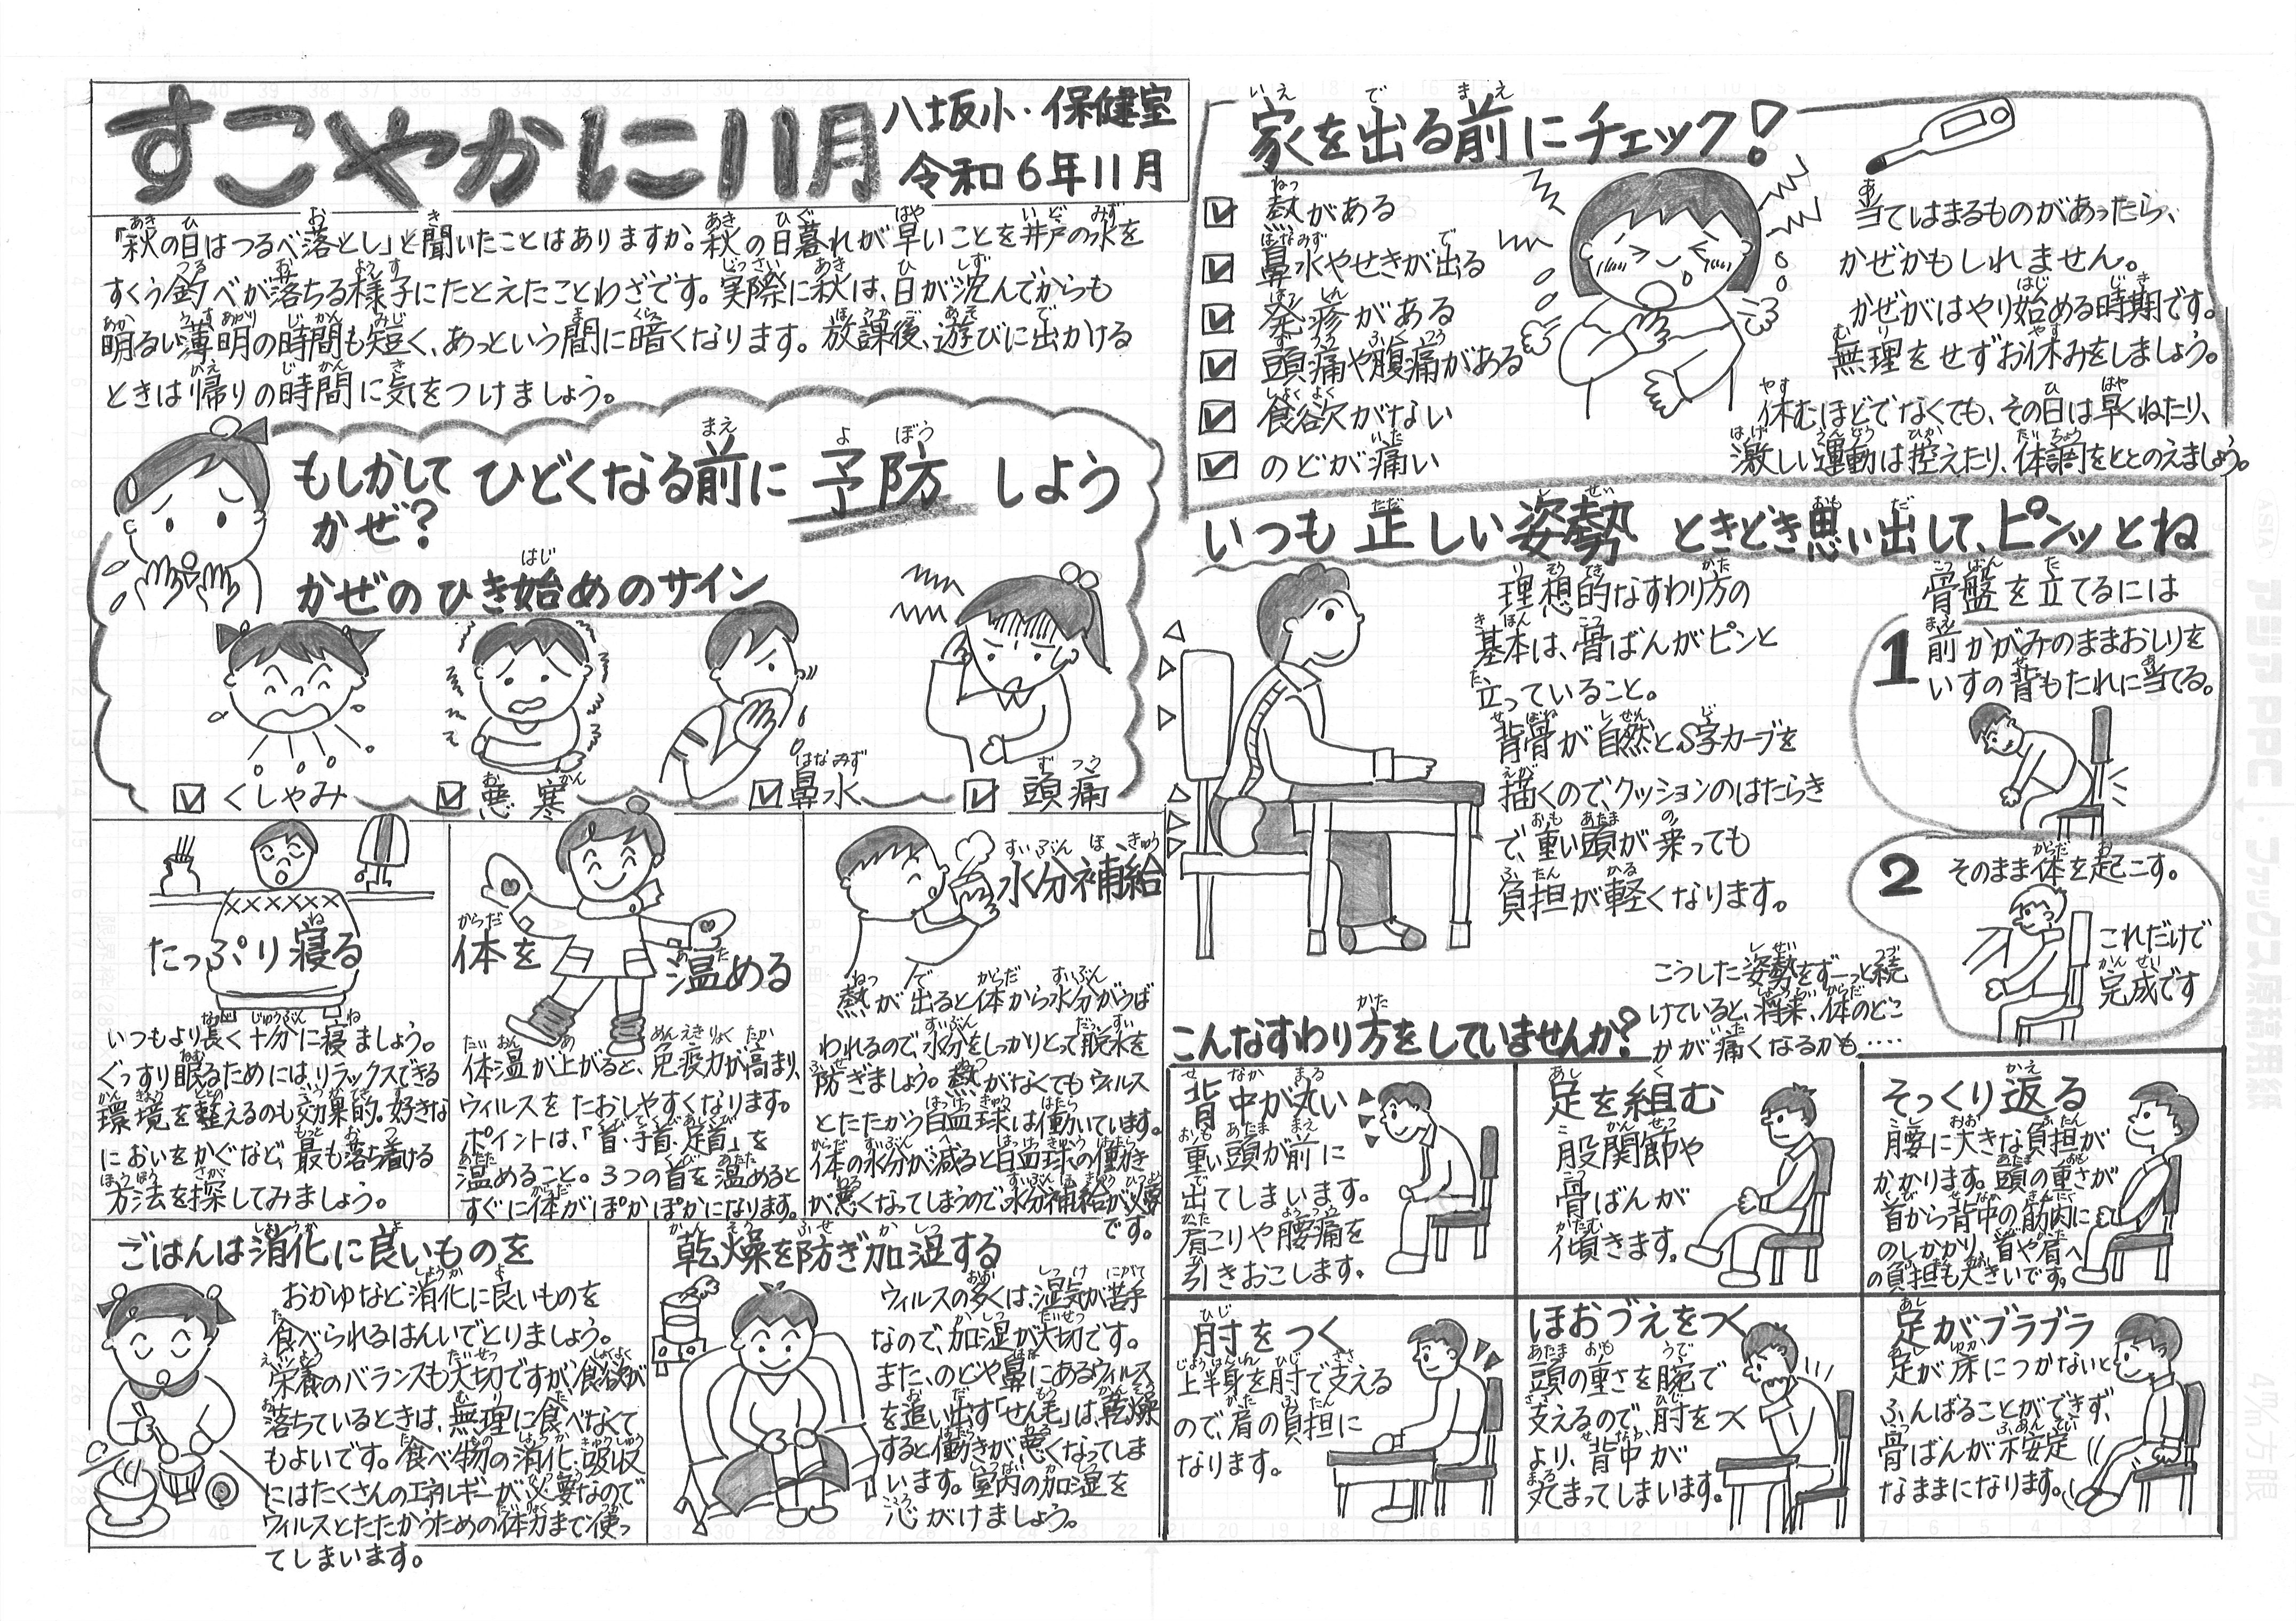 すこやかに11月
八坂小・保健室
令和6年11月
「秋の日はつるべ落とし」と聞いたことはありますか。秋の日暮れが早いことを井戸の水を
すくう釣べが落ちる様子にたとえたことわざです。実際に秋は、日が沈んでからも
明るい薄明の時間も短く、あっという間に暗くなります。放課後、遊びに出かける
ときは帰りの時間に気をつけましょう。
もしかして
かぜ?
ひどくなる前に 予防 しよう
かぜのひき始めのサイン
くしゃみ
悪寒
鼻水
頭痛
たっぷり寝る
いつもより長く十分に寝ましょう。
ぐっすり眠るためには、リラックスできる
環境を整えるのも効果的。好きな
においをかぐなど、最も落ち着ける
方法を探してみましょう。
体を温める
体温が上がると、免疫力が高まり、
ウィルスをたおしやすくなります。
ポイントは、「首、手首、足首」を
温めること。3つの首を温めると
すぐに体がぽかぽかになります。
水分補給
熱が出ると体から水分がうば
われるので、水分をしっかりとって脱水を
防ぎましょう。熱がなくてもウィルス
とたたかう白血球は働いています。
体の水分が減ると白血球の働き
が悪くなってしまうので、水分補給が必要
です。
ごはんは消化に良いものを
おかゆなど消化に良いものを
食べられるはんいでとりましょう。
栄養のバランスも大切ですが、食欲が
落ちているときは、無理に食べなくて
もよいです。食べ物の消化・吸収
にはたくさんのエネルギーが必要なので
ウィルスとたたかうための体力まで使っ
てしまいます。
乾燥を防ぎ加湿する
ウィルスの多くは、湿気が苦手
なので、加湿が大切です。
また、のどや鼻にあるウィルス
を追い出す「せん毛」は、乾燥
すると働きが悪くなってしま
います。室内の加湿を
心がけましょう。
家を出る前にチェック!
熱がある
鼻水やせきが出る
発疹がある
頭痛や腹痛がある
食欲がない
のどが痛い
当てはまるものがあったら、
かぜかもしれません。
かぜがはやり始める時期です。
無理をせずお休みをしましょう。
休むほどでなくても、その日は早くねたり、
激しい運動は控えたり、体調をととのえましょう。
いつも 正しい姿勢 ときどき思い出して、ピンッとね
理想的なすわり方の
基本は、骨ばんがピンと
立っていること。
背骨が自然とS字カーブを
描くので、クッションのはたらき
で、重い頭が乗っても
負担が軽くなります。
骨盤を立てるには
1 前かがみのままおしりを
いすの背もたれに当てる。
2 そのまま体を起こす。
これだけで
完成です
こうした姿勢をずーっと続
けていると、将来、体のどこ
かが痛くなるかも‥‥
こんなすわり方をしていませんか?
背中が丸い
重い頭が前に
出てしまいます。
肩こりや腰痛を
引きおこします。
足を組む
股関節や
骨ばんが
傾きます。
そっくり返る
腰に大きな負担が
かかります。頭の重さが
首から背中の筋肉に
のしかかり、首や肩へ
の負担も大きいです。
肘をつく
上半身を肘で支える
ので、肩の負担に
なります。
ほおづえをつく
頭の重さを腕で
支えるので、肘をつく
より、背中が
丸まってしまいます。
足がブラブラ
足が床につかないと
ふんばることができず、
骨ばんが不安定
なままになります。